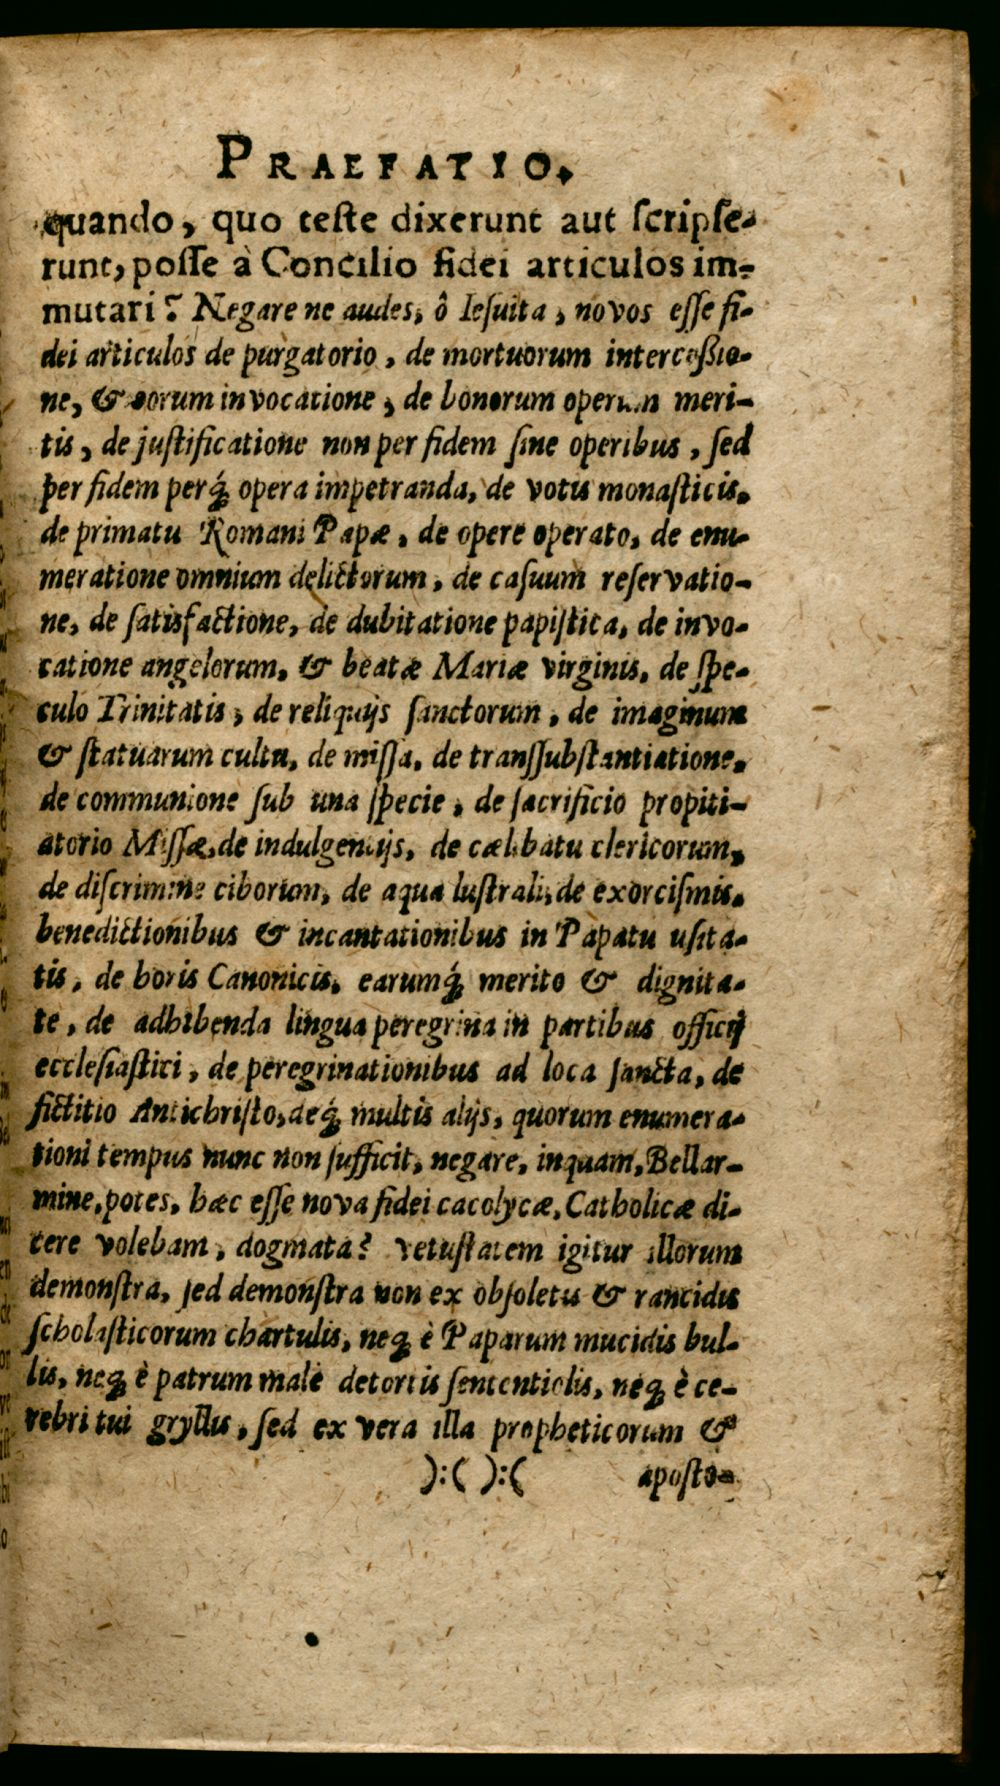 PRAEFATIO.
quando, quo teſte dixerunt aut ſcripſe-
runt, poſſe à Concilio fidei articulos im-
mutari? Negare ne audes, ô Ieſuita, novos eſſe fi-
dei articulos de purgatorio, de mortuorum interceßio-
ne, & eorum invocatione, de bonorum operum meri-
tis, de juſtificatione non per fidem ſine operibus, ſed
per fidem perq́; opera impetranda, de votis monaſticis,
de primatu Romani Papæ, de opere operato, de enu-
meratione omnium delictorum, de caſuum reſervatio-
ne, de ſatisfactione, de dubitatione papiſtica, de invo-
catione angelorum, & beatæ Mariæ virginis, de ſpe-
culo Trinitatis, de reliquijs ſanctorum, de imaginum
& ſtatuarum cultu, de miſſa, de transſubſtantiatione,
de communione ſub una ſpecie, de ſacrificio propiti-
atorio Miſſæ, de indulgentijs, de cælibatu clericorum,
de diſcrimine ciborum, de aqua luſtrali, de exorciſmis,
benedictionibus & incantationibus in Papatu uſita-
tis, de horis Canonicis, earumq́; merito & dignita-
te, de adhibenda lingua peregrina in partibus officij
eccleſiaſtici, de peregrinationibus ad loca ſancta, de
fictitio Antichriſto, deq́; multis alijs, quorum enumera-
tioni tempus nunc non ſufficit, negare, inquam, Bellar-
mine, potes, hæc eſſe nova fidei cacolycæ, Catholicæ di-
cere volebam, dogmata? vetuſtatem igitur illorum
demonſtra, ſed demonſtra non ex obſoletis & rancidis
ſcholaſticorum chartulis, neq; è Paparum mucidis bul-
lis, neq; è patrum malè detortis ſententiolis, neq; è ce-
rebri tui gryllis, ſed ex vera illa propheticorum &
):( ):( apoſto-